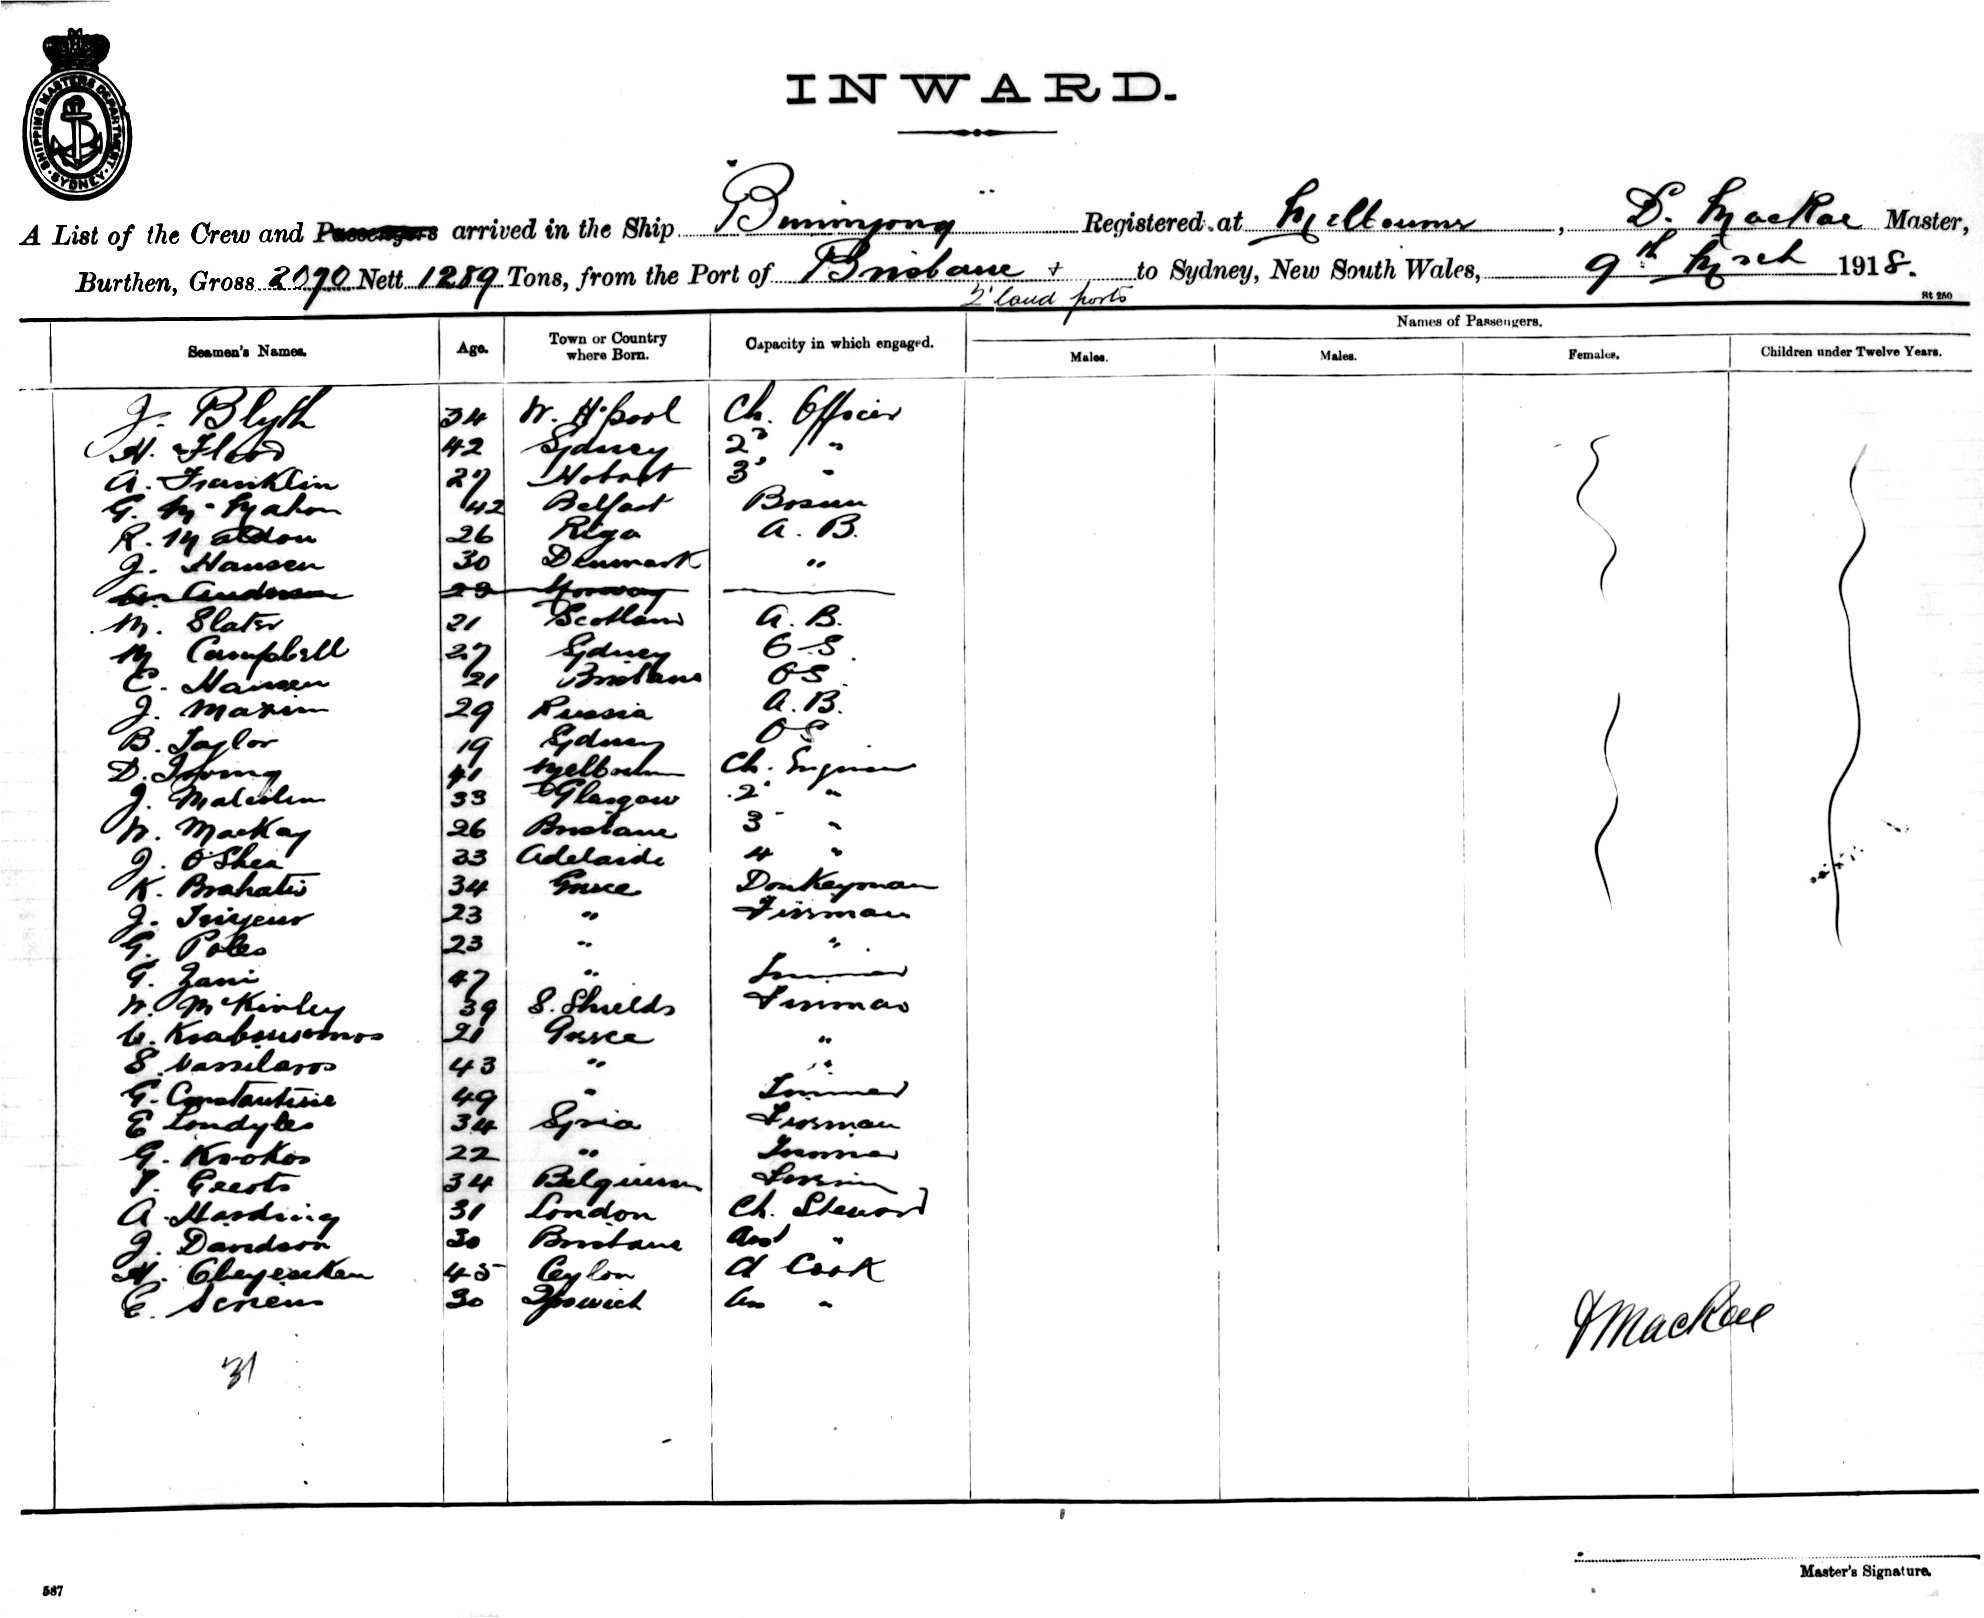 SHIPPING MASTERS DEPARTMENT SYDNEY
INWARD.
A List of the Crew and Passengers arrived in the Ship "Buninyong" Registered at Melbourne, D. MacRae Master,
Burthen, Gross 2090 Nett 1289 Tons, from the Port of Brisbane + to Sydney, New South Wales, 9th March 1918.
Q'land ports
St 250
Seamen's Names. Age. Town or Country where Born. Capacity in which engaged. Names of Passengers.
Males. Males. Females. Children under Twelve Years.
J. Blyth 34 W. H'pool Ch. Officer
H. Flood 42 Sydney 2d "
A. Franklin 27 Hobart 3d "
G. McMahon 42 Belfast Bosun
R. Maldon 26 Riga A. B.
J. Hansen 30 Denmark "
Anderson 23 Norway
M. Slater 21 Scotland A. B.
M Campbell 27 Sydney O S.
C. Hansen 21 Brisbane O S.
J. Maxim 29 Russia A. B.
B. Taylor 19 Sydney O S
D. Irving 41 Melbourne Ch. Engineer
J. Malcolm 33 Glasgow 2 "
W. MacKay 26 Brisbane 3 "
J. O'Shea 33 Adelaide 4 "
K. 34 Greece Donkeyman
J. 23 " Fireman
G. Poles 23 " "
G. Zani 47 " Trimmer
W. McKinley 39 S. Shields Fireman
21 Greece "
S. Vassilaros 43 " "
G. Constantine 49 " Trimmer
E Londyles 34 Syria Fireman
G. Krokos 22 " Trimmer
Geerts 34 Belgium
A. Harding 31 London Ch. Steward
J. Davidson 30 Brisbane Asst "
H. 45 Ceylon Cook
E. 30 Ipswich "
31
D MacRae
Master's Signature.
587